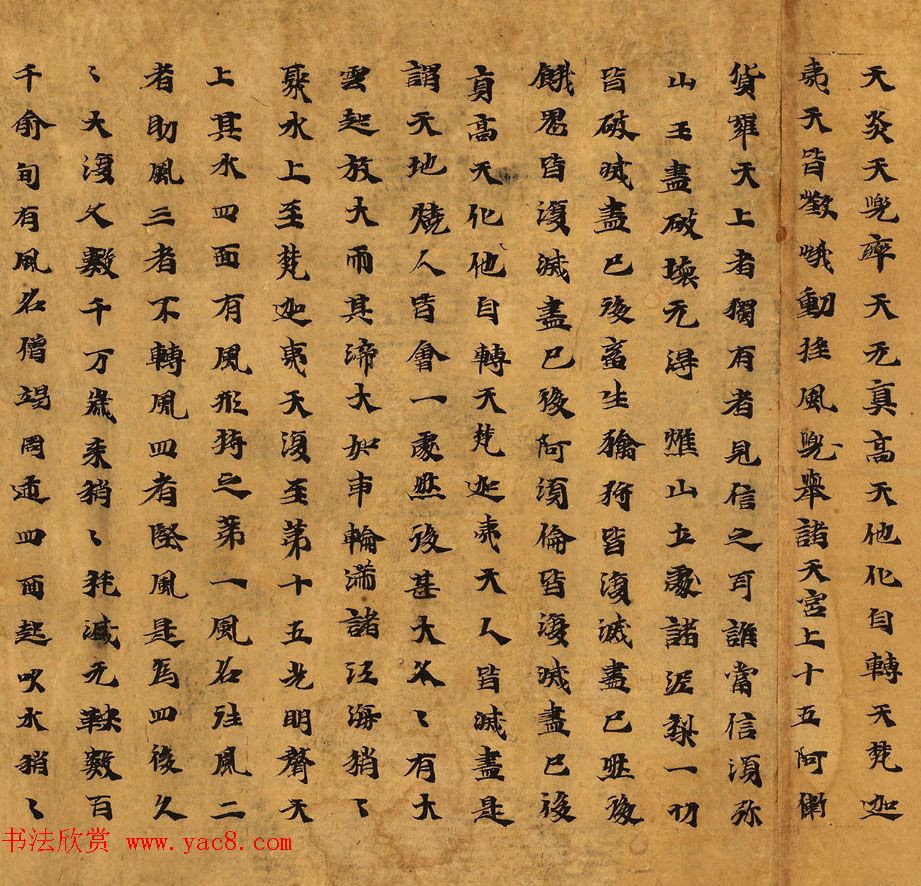 天炎天兜率天无真高天他化自轉天梵迦
夷天皆㪍峨動揺風兜舉諸天宮上十五阿衛
貨羅天上者獨有者見信之耳誰當信須弥
山王盡破壞无得燋山立處諸泥梨一切
皆破滅盡已後畜生獪狩皆復滅盡已然後
餓鬼皆復滅盡已後阿須倫皆復滅盡已後
真高天化他自轉天梵迦夷天人皆滅盡是
謂天地燒人皆會一處然後甚大久〻有大
雲起放大雨其渧大如車輪滿諸江海稍〻
聚水上至梵迦夷天復至第十五光明聲天
上其水四面有風形持之第一風名住風二
者助風三者不轉風四者堅風是為四後久
〻大復久數千万歲来稍〻耗減无鞅數百
千俞旬有風名僧竭周通四面起吹水稍〻
书法欣赏 www.yac8.com